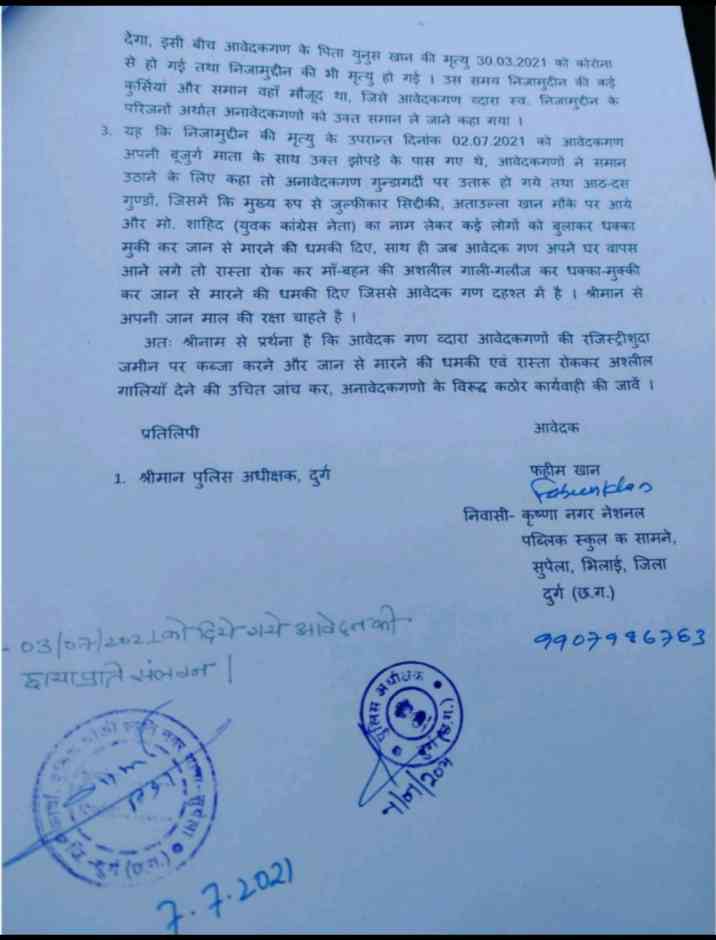 देगा, इसी बीच आवेदकगण के पिता युनुस खान की मृत्यु 30.03.2021 को कोरोना
से हो गई तथा निजामुद्दीन की भी मृत्यु हो गई । उस समय निजामुद्दीन की कई
कुर्सियां और समान वहाँ मौजूद था, जिसे आवेदकगण व्दारा स्व. निजामुद्दीन के
परिजनों अर्थात अनावेदकगणो को उक्त समान ले जाने कहा गया ।
3. यह कि निजामुद्दीन की मृत्यु के उपरान्त दिनांक 02.07.2021 को आवेदकगण
अपनी बूजुर्ग माता के साथ उक्त झोपडे के पास गए थे, आवेदकगणों ने समान
उठाने के लिए कहा तो अनावेदकगण गुन्डागर्दी पर उतारू हो गये तथा आठ-दस
गुण्डों, जिसमें कि मुख्य रुप से जुल्फीकार सिद्दीकी, अताउल्ला खान मौके पर आये
और मो. शाहिद (युवक कांग्रेस नेता) का नाम लेकर कई लोगों को बुलाकर धक्का
मुकी कर जान से मारने की धमकी दिए, साथ ही जब आवेदक गण अपने घर वापस
आने लगे तो रास्ता रोक कर माँ-बहन की अशलील गाली-गलौज कर धक्का-मुक्की
कर जान से मारने की धमकी दिए जिससे आवेदक गण दहश्त में है । श्रीमान से
अपनी जान माल की रक्षा चाहते है ।
अतः श्रीनाम से प्रर्थना है कि आवेदक गण व्दारा आवेदकगणों की रजिस्ट्रीशुदा
जमीन पर कब्जा करने और जान से मारने की धमकी एवं रास्ता रोककर अश्लील
गालियाँ देने की उचित जांच कर, अनावेदकगणो के विरूद्ध कठोर कार्यवाही की जावें ।
प्रतिलिपी
आवेदक
1. श्रीमान पुलिस अधीक्षक, दुर्ग
फहीम खान
निवासी- कृष्णा नगर नेशनल
पब्लिक स्कुल क सामने,
सुपेला, भिलाई, जिला
दुर्ग (छ.ग.)
9907986763
- 03/07/2021 को दिये गये आवेदन की
छायाप्रति संलग्न |
पुलिस अधीक्षक
दुर्ग (छ.ग.)
7/7/2021
दुर्ग (छ.ग.)
7.7.2021